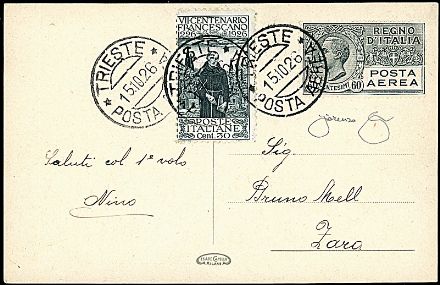 VII CENTENARIO
FRANCESCANO
1226 1926
POSTE
ITALIANE
Cent. 30
REGNO
D'ITALIA
POSTA
AEREA
CENTESIMI 60
TRIESTE
15.10.26
POSTA AEREA
TRIESTE
15.10.26
POSTA AEREA
Saluti col 1º volo
Nino
Sig.
Bruno Mell
Zara